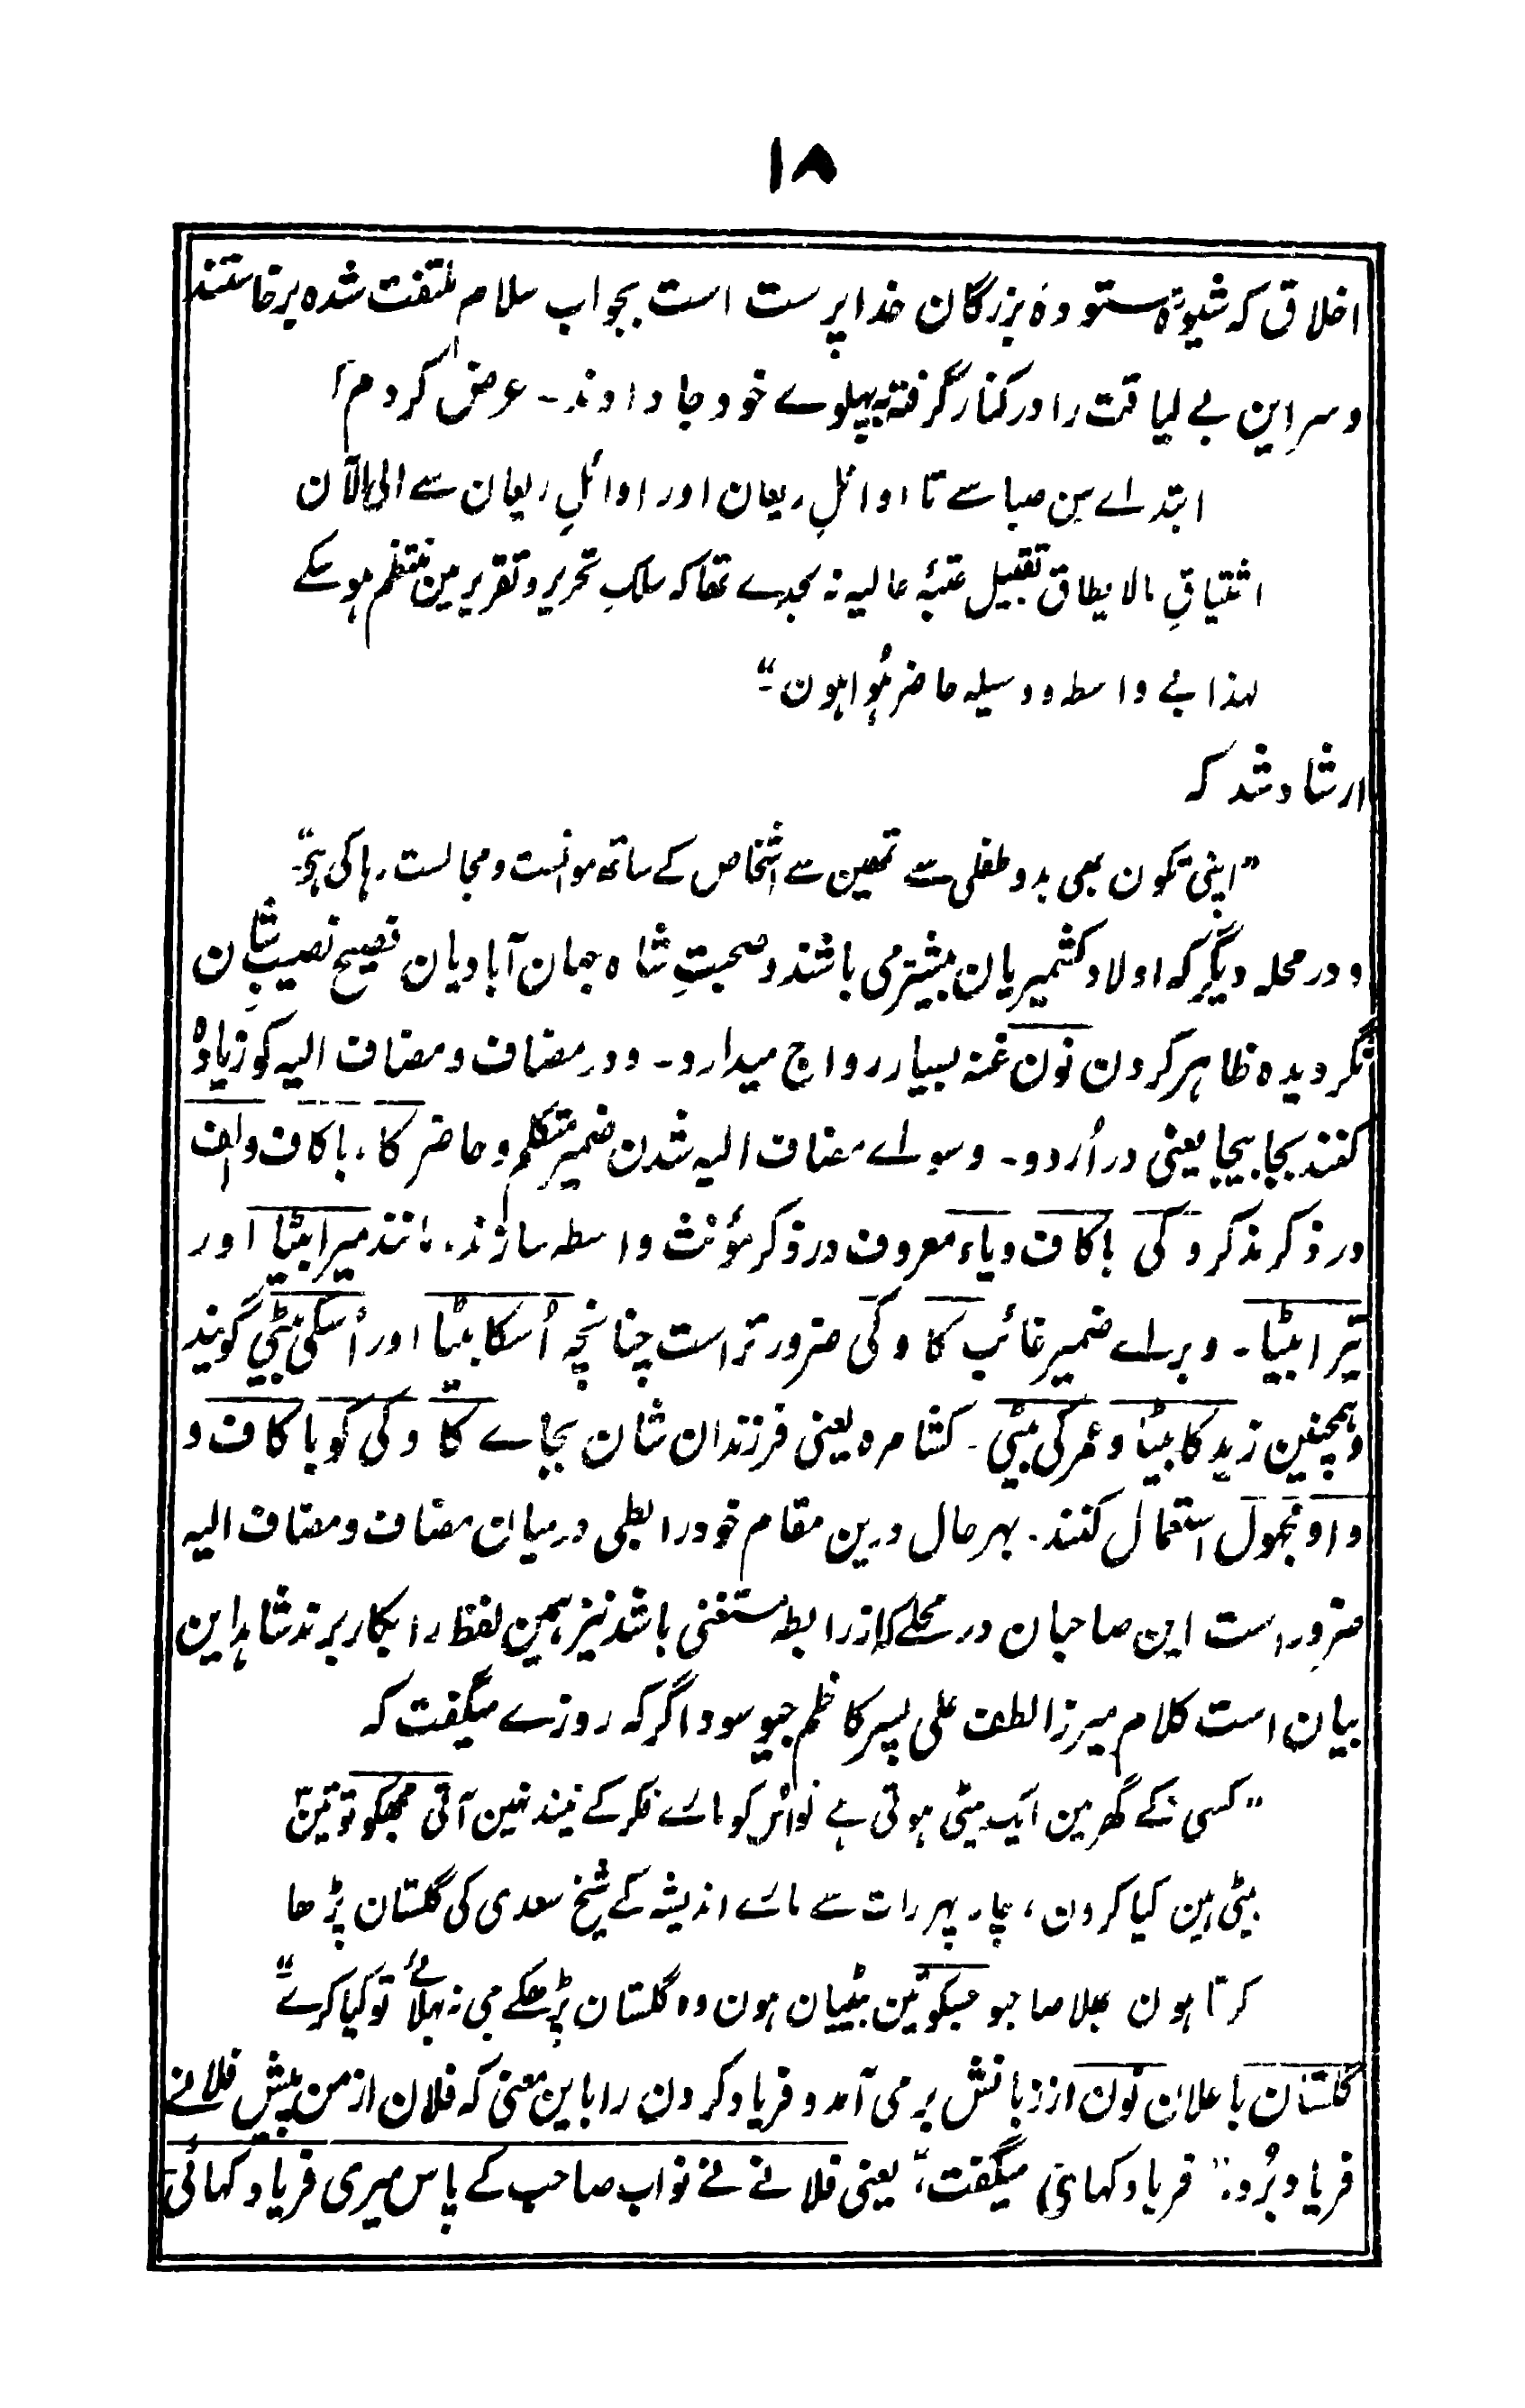 ۱۸
اخلاق که شیوۀ ستودۀ بزرگان خداپرست است بجواب سلام ملتفت شده برخاستند
و سر این بے لیاقت را در کنار گرفته به پہلوے خود جا دادند۔ عرض کردم
ابتداے سن صبا سے تا اوائلِ ریعان اور اوائلِ ریعان سے الی الآن
اشتیاقِ مالایطاق تقبیل عتبۂ عالیہ نہ بحدے تھا کہ سلکِ تحریر و تقریر مین منتظم ہو سکے
لہذا بے واسطہ و وسیلہ حاضر ہُوا ہون۔“
ارشاد شد که
”اپنی تکون بھی بدو طفلی سے تمھین سے اشخاص کے ساتھ موانست و مجالست رہا کی ہے“
و در محله دیگر که اولاد کشمیریان بیشتر می باشند و صحبتِ شاہ جہان آبادیان فصیح نصیبِ شان
نگردیده ظاہر کردن نون غنه بسیار رواج میدارد۔ و در مضاف و مضاف الیه کو زیادہ
کنند بجا بیجا یعنی در اُردو۔ و سواے مضاف الیه شدن ضمیر متکلم و حاضر کا، با کاف و الف
در ذکر مذکر و کی با کاف و یاء معروف در ذکر مؤنث واسطه سازند، مانند میرا بیٹا اور
تیرا بیٹا۔ و براے ضمیر غائب کا و کی ضرور تر است چنانچہ اُسکا بیٹا اور اُسکی بیٹی گویند
و ہمچنین زید کا بیٹا و عمر کی بیٹی۔ کشامرہ یعنی فرزندان شان بجاے کا و کی کو با کاف و
واو مجہول استعمال کنند۔ بہر حال درین مقام خود رابطی درمیان مضاف و مضاف الیه
ضرور است این صاحبان در محلے که از رابطه مستغنی باشد نیز ہمین لفظ را بکار برند شاہد این
بیان است کلام میرزا لطف علی پسر کاظم جیو سوداگر که روزے میگفت که
”کسی کے گھر مین ایک بیٹی ہوتی ہے تو اُس کو مارے فکر کے نیند نہین آتی مجھکو تو تین
بیٹی ہین کیا کرون، چار پہر رات سے مارے اندیشہ کے شیخ سعدی کی گلستان پڑھا
کرتا ہون بھلا صاحبو جسکو تین بیٹیان ہون وہ گلستان پڑھکے جی نہ بہلائے تو کیا کرے“
گلستان با علان نون از زبانش بر می آمد و فریاد کردن را باین معنی که فلان از من پیش فلانے
فریاد بُرد، ”فریاد کہائی میگفت،“ یعنی فلانے نے نواب صاحب کے پاس میری فریاد کہائی